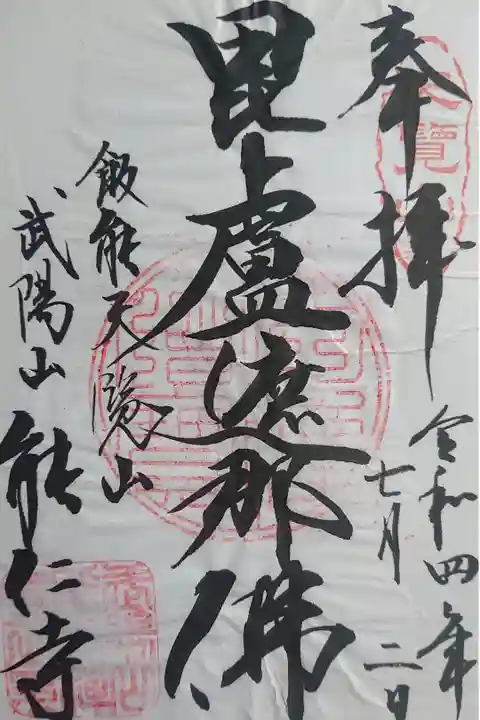 奉拝
天覧山
令和四年
七月二日
毘盧遮那佛
飯能天覧山
武陽山
能仁寺